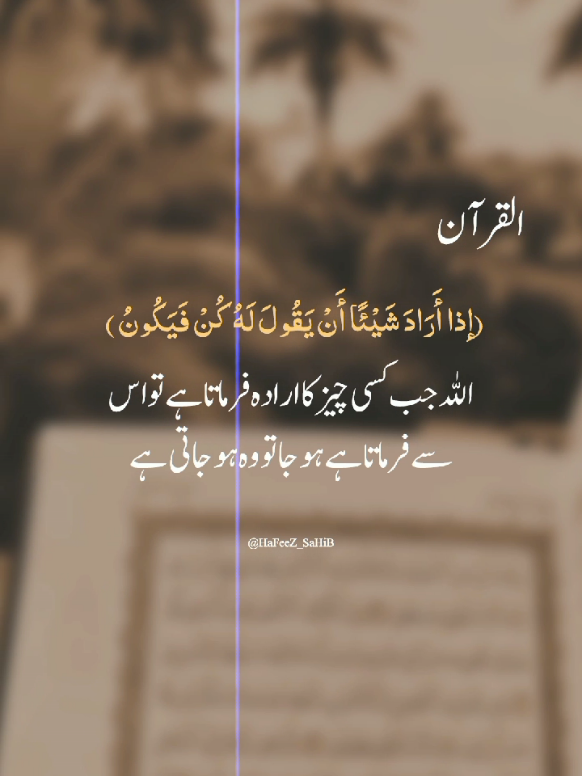 القرآن
(إِذا أَرَادَ شَيْئًا أَنْ يَقُولَ لَهُ كُنْ فَيَكُونُ)
اللہ جب کسی چیز کا ارادہ فرماتا ہے تو اس
سے فرماتا ہے ہو جا تو وہ ہو جاتی ہے
@HaFeeZ_SaHiB